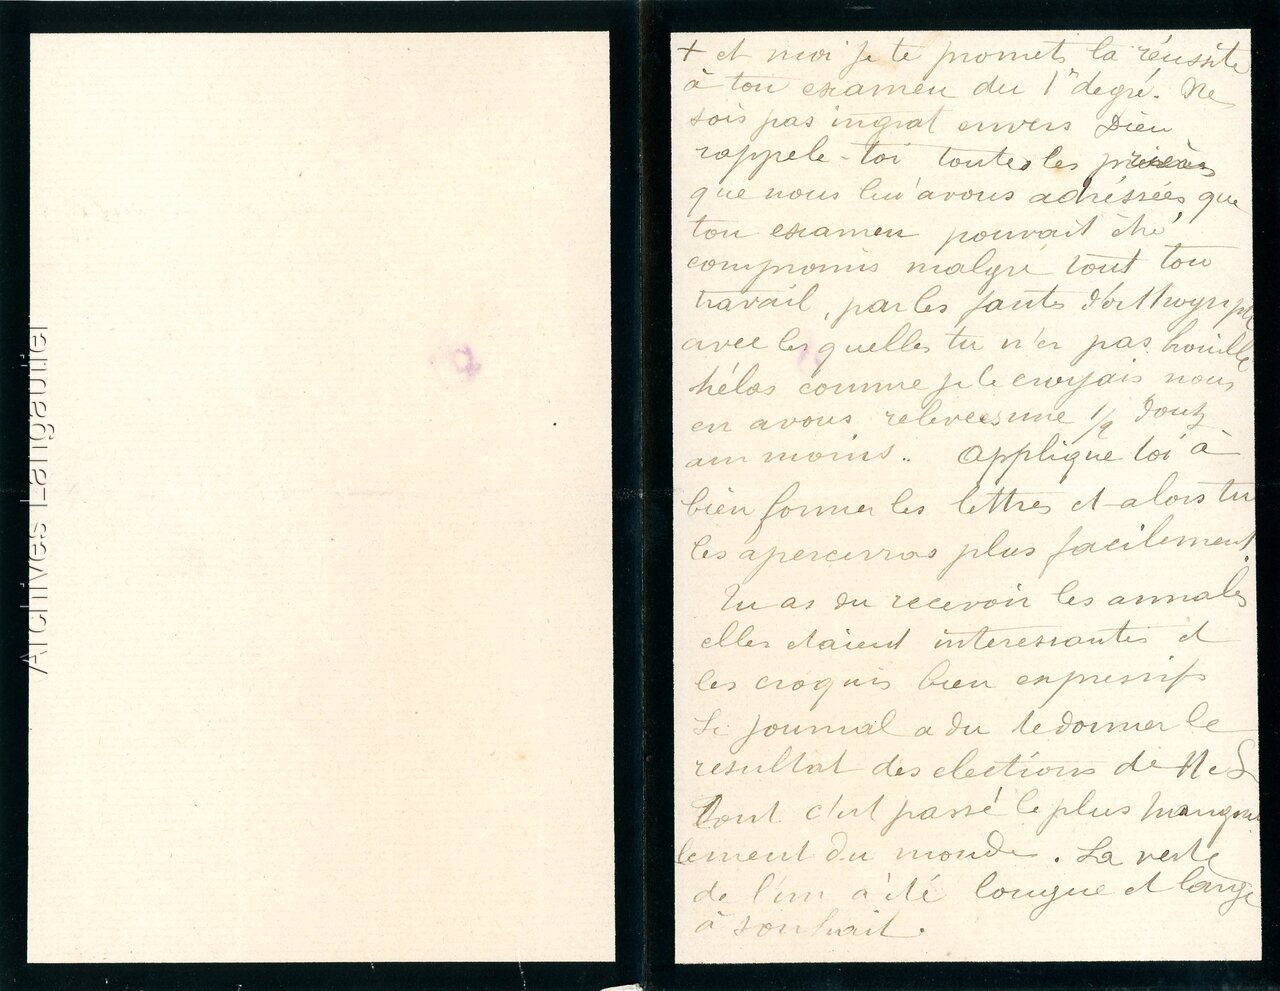 Archives Langautier
+ et moi je te promets la réussite
à ton examen du 1er degré. Ne
sois pas ingrat envers Dieu
rappele-toi toutes les prières
que nous lui avons adréssées que
ton examen pouvait être
compromis malgré tout ton
travail, par les fautes d'orthographe
avec lesquelles tu n'es pas brouillé
hélas comme je le croyais nous
en avons relevées une 1/2 douz
au moins.. Applique toi à
bien former les lettres et alors tu
les apercevras plus facilement.
Tu as du recevoir les annales
elles étaient interessantes et
les croquis bien expressifs
Le journal a du te donner le
resultat des elections de
tout c'est passé le plus tranquil
lement du monde. La veste
de l'un a été longue et large
à souhait.